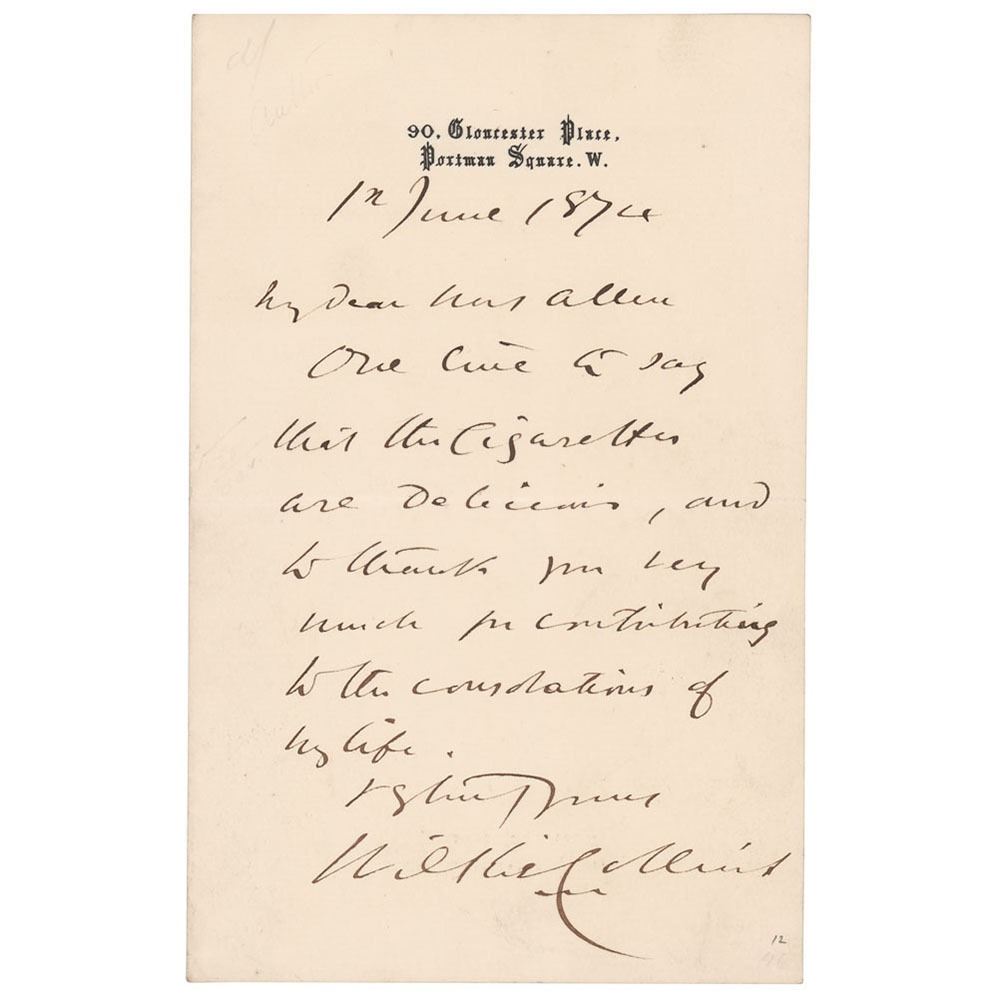 90. Gloucester Place,
Portman Square. W.
1st June 1874
My dear Mrs Allen
One line to say
that the Cigarettes
are delicious, and
to thank you very
much for contributing
to the consolations of
my life.
Yours
Wilkie Collins
12